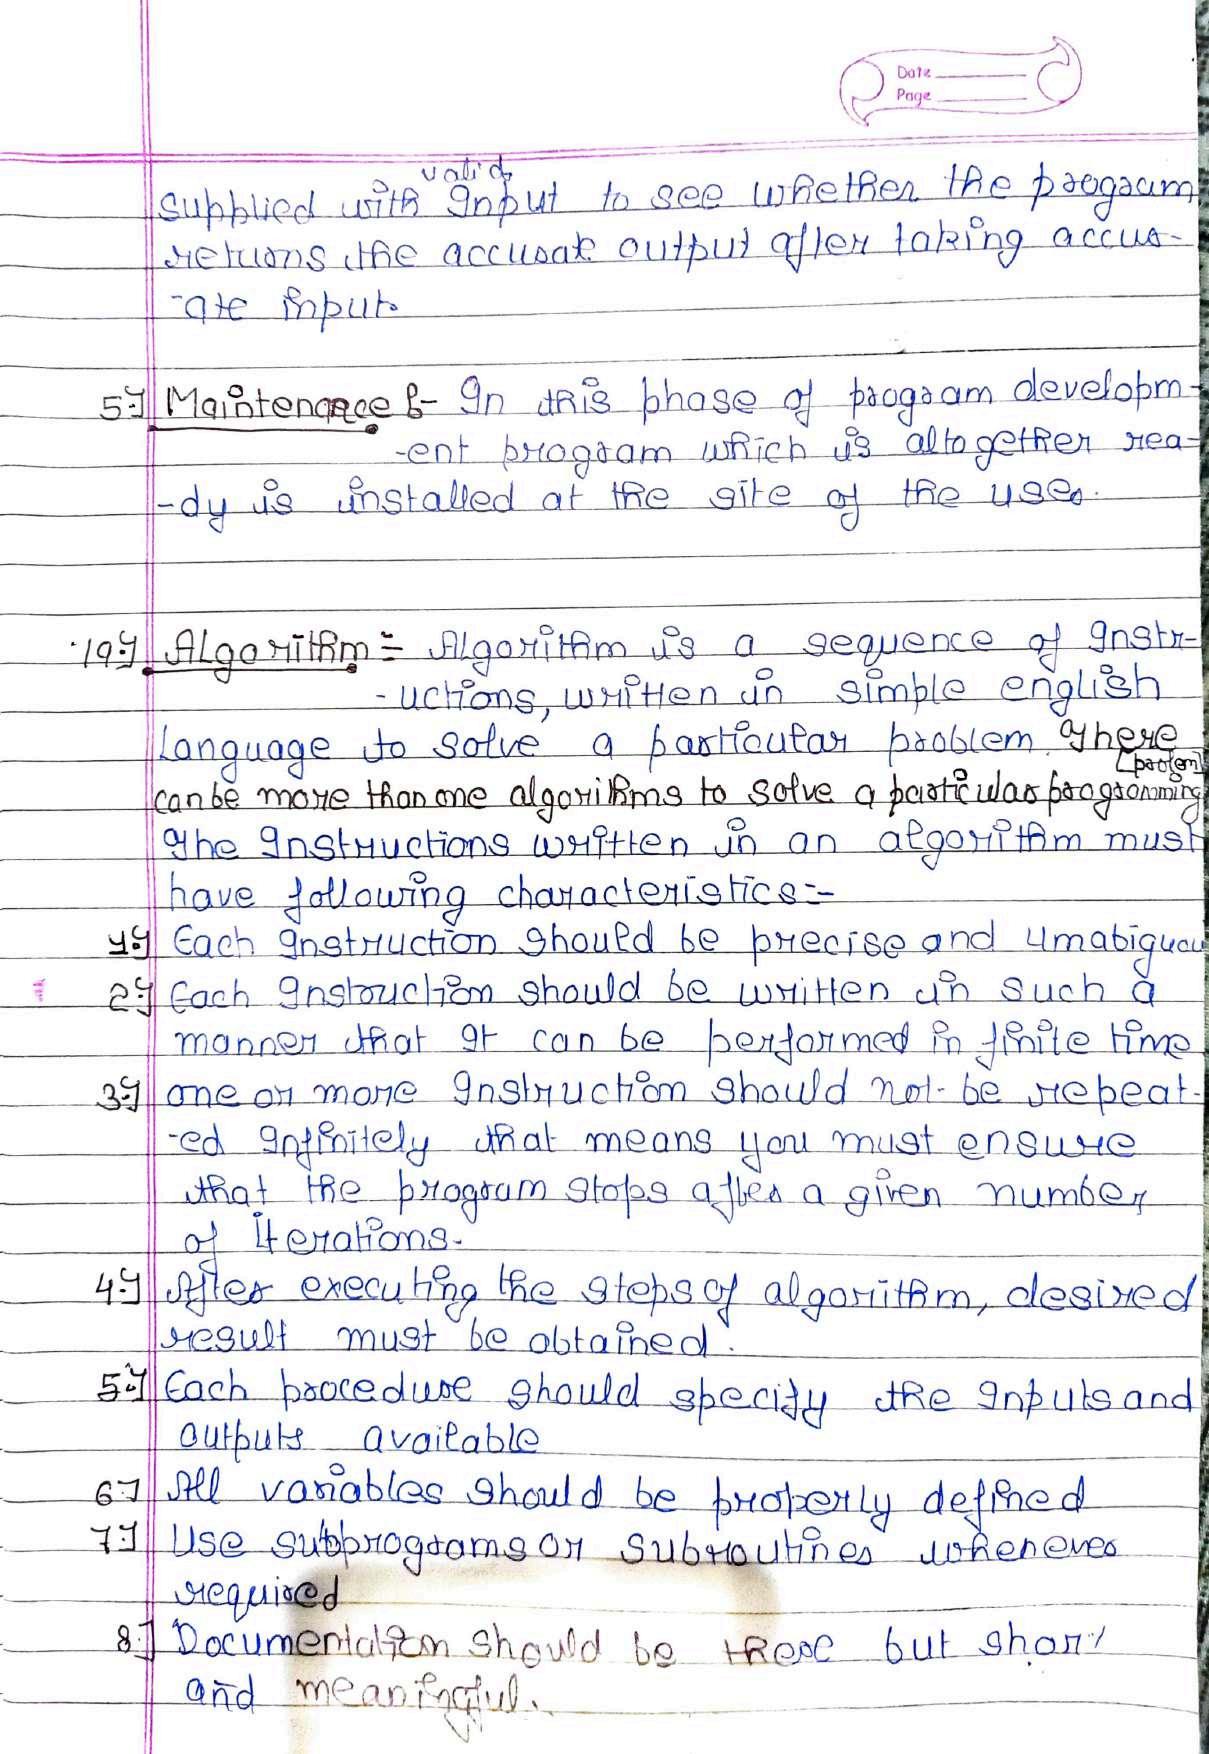 Date
Page
valid
supplied with Input to see whether the program
returns the accurate output after taking accur-
-ate input.
5:] Maintenance :- In this phase of program developm-
-ent program which is altogether rea-
-dy is installed at the site of the user.
19:] Algorithm :- Algorithm is a sequence of Instr-
-uctions, written in simple english
language to solve a particular problem. There
[problem]
can be more than one algorithms to solve a particular programming
The Instructions written in an algorithm must
have following characteristics:-
1:] Each Instruction should be precise and umabiguou
2:] Each Instruction should be written in such a
manner that It can be performed in finite time
3:] one or more Instruction should not be repeat-
-ed Infinitely that means you must ensure
that the program stops after a given number
of iterations.
4:] After executing the steps of algoriithm, desired
result must be obtained.
5:] Each procedure should specify the Inputs and
outputs available
6:] All variables should be properly defined
7:] Use subprograms or subroutines whenever
required
8:] Documentation should be there but short
and meaningful.